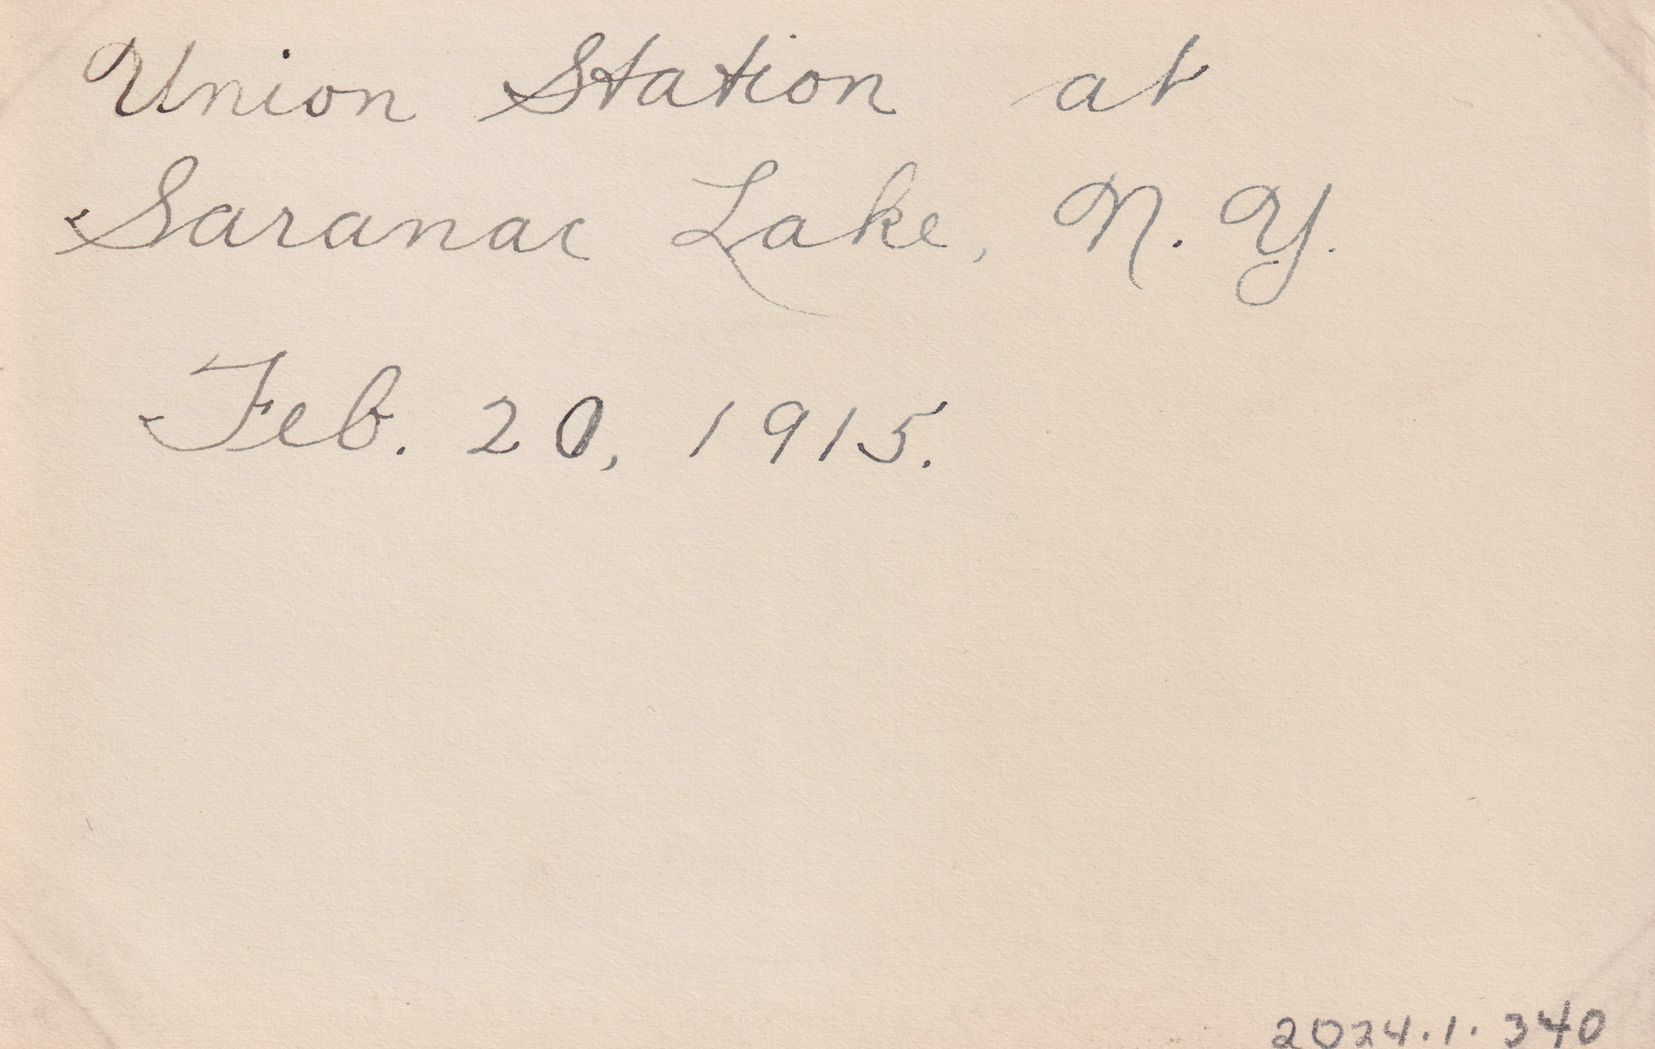 Union Station at
Saranac Lake, N.Y.
Feb. 20, 1915.
2024.1.340